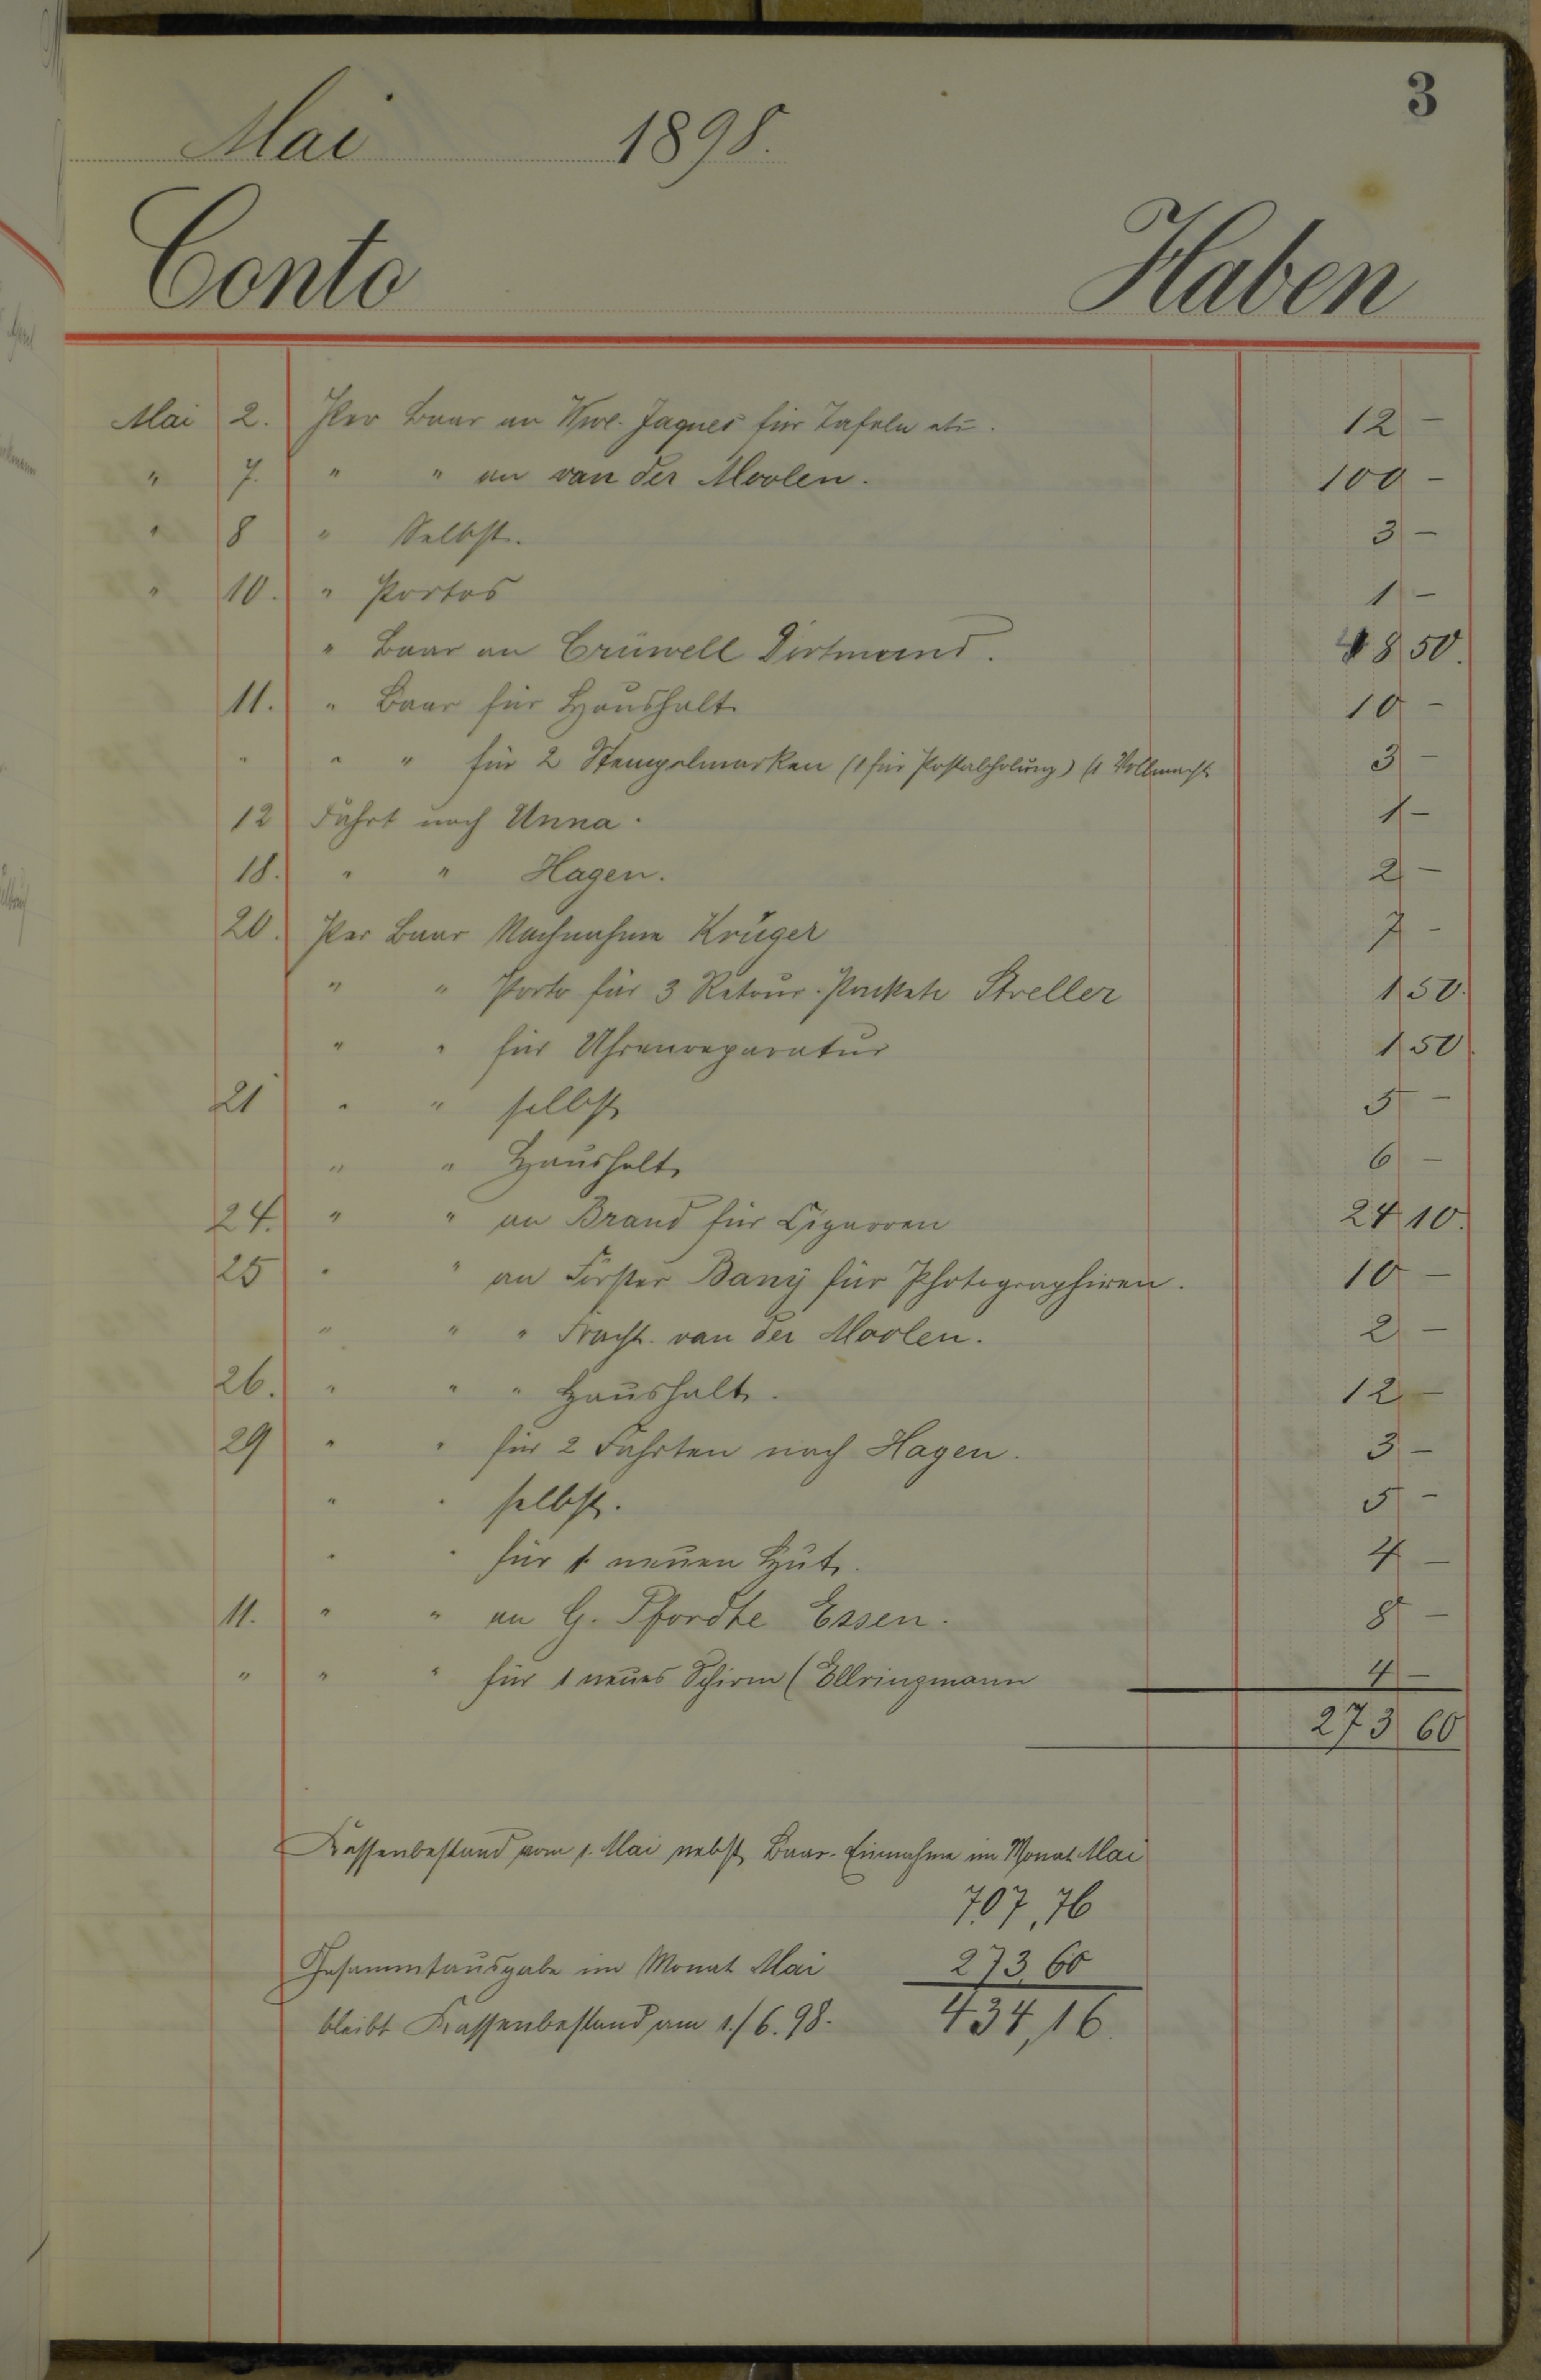 3
Mai 1898.
Conto Haben
Mai 2. Per Baar an Wwe. Jaques für Tafeln etc. 12 –
" 7. " " an van der Moolen. 100 –
" 8 " Selbst. 3 –
" 10. " Portos 1 –
" Baar an Crüwell Dortmund. 48 50.
11. " Baar für Haushalt 10 –
" " " für 2 Stempelmarken (1 für Postabholung) (1 Vollmacht 3 –
12 Fahrt nach Unna. 1 –
18. " " Hagen. 2 –
20. Per Baar Nachnahme Krüger 7 –
" " Porto für 3 Retour-Packete Streller 1 50.
" " für Uhrenreparatur 1 50.
21 " " selbst 5 –
" " Haushalt 6 –
24. " " an Brand für Cigarren 24 10.
25 " " an Förster Bany für Photographiren. 10 –
" " " Fracht. van der Moolen. 2 –
26. " " " Haushalt. 12 –
29 " " für 2 Fahrten nach Hagen. 3 –
" " selbst. 5 –
" " für 1 neuen Hut. 4 –
11. " " an G. Pfordte Essen. 8 –
" " " für 1 neues Schirm (Ellringmann 4 –
273 60
Kassenbestand vom 1. Mai nebst Baar-Einnahme im Monat Mai
707,76
Gesammtausgabe im Monat Mai 273,60
bleibt Kassenbestand am 1./6.98. 434,16.